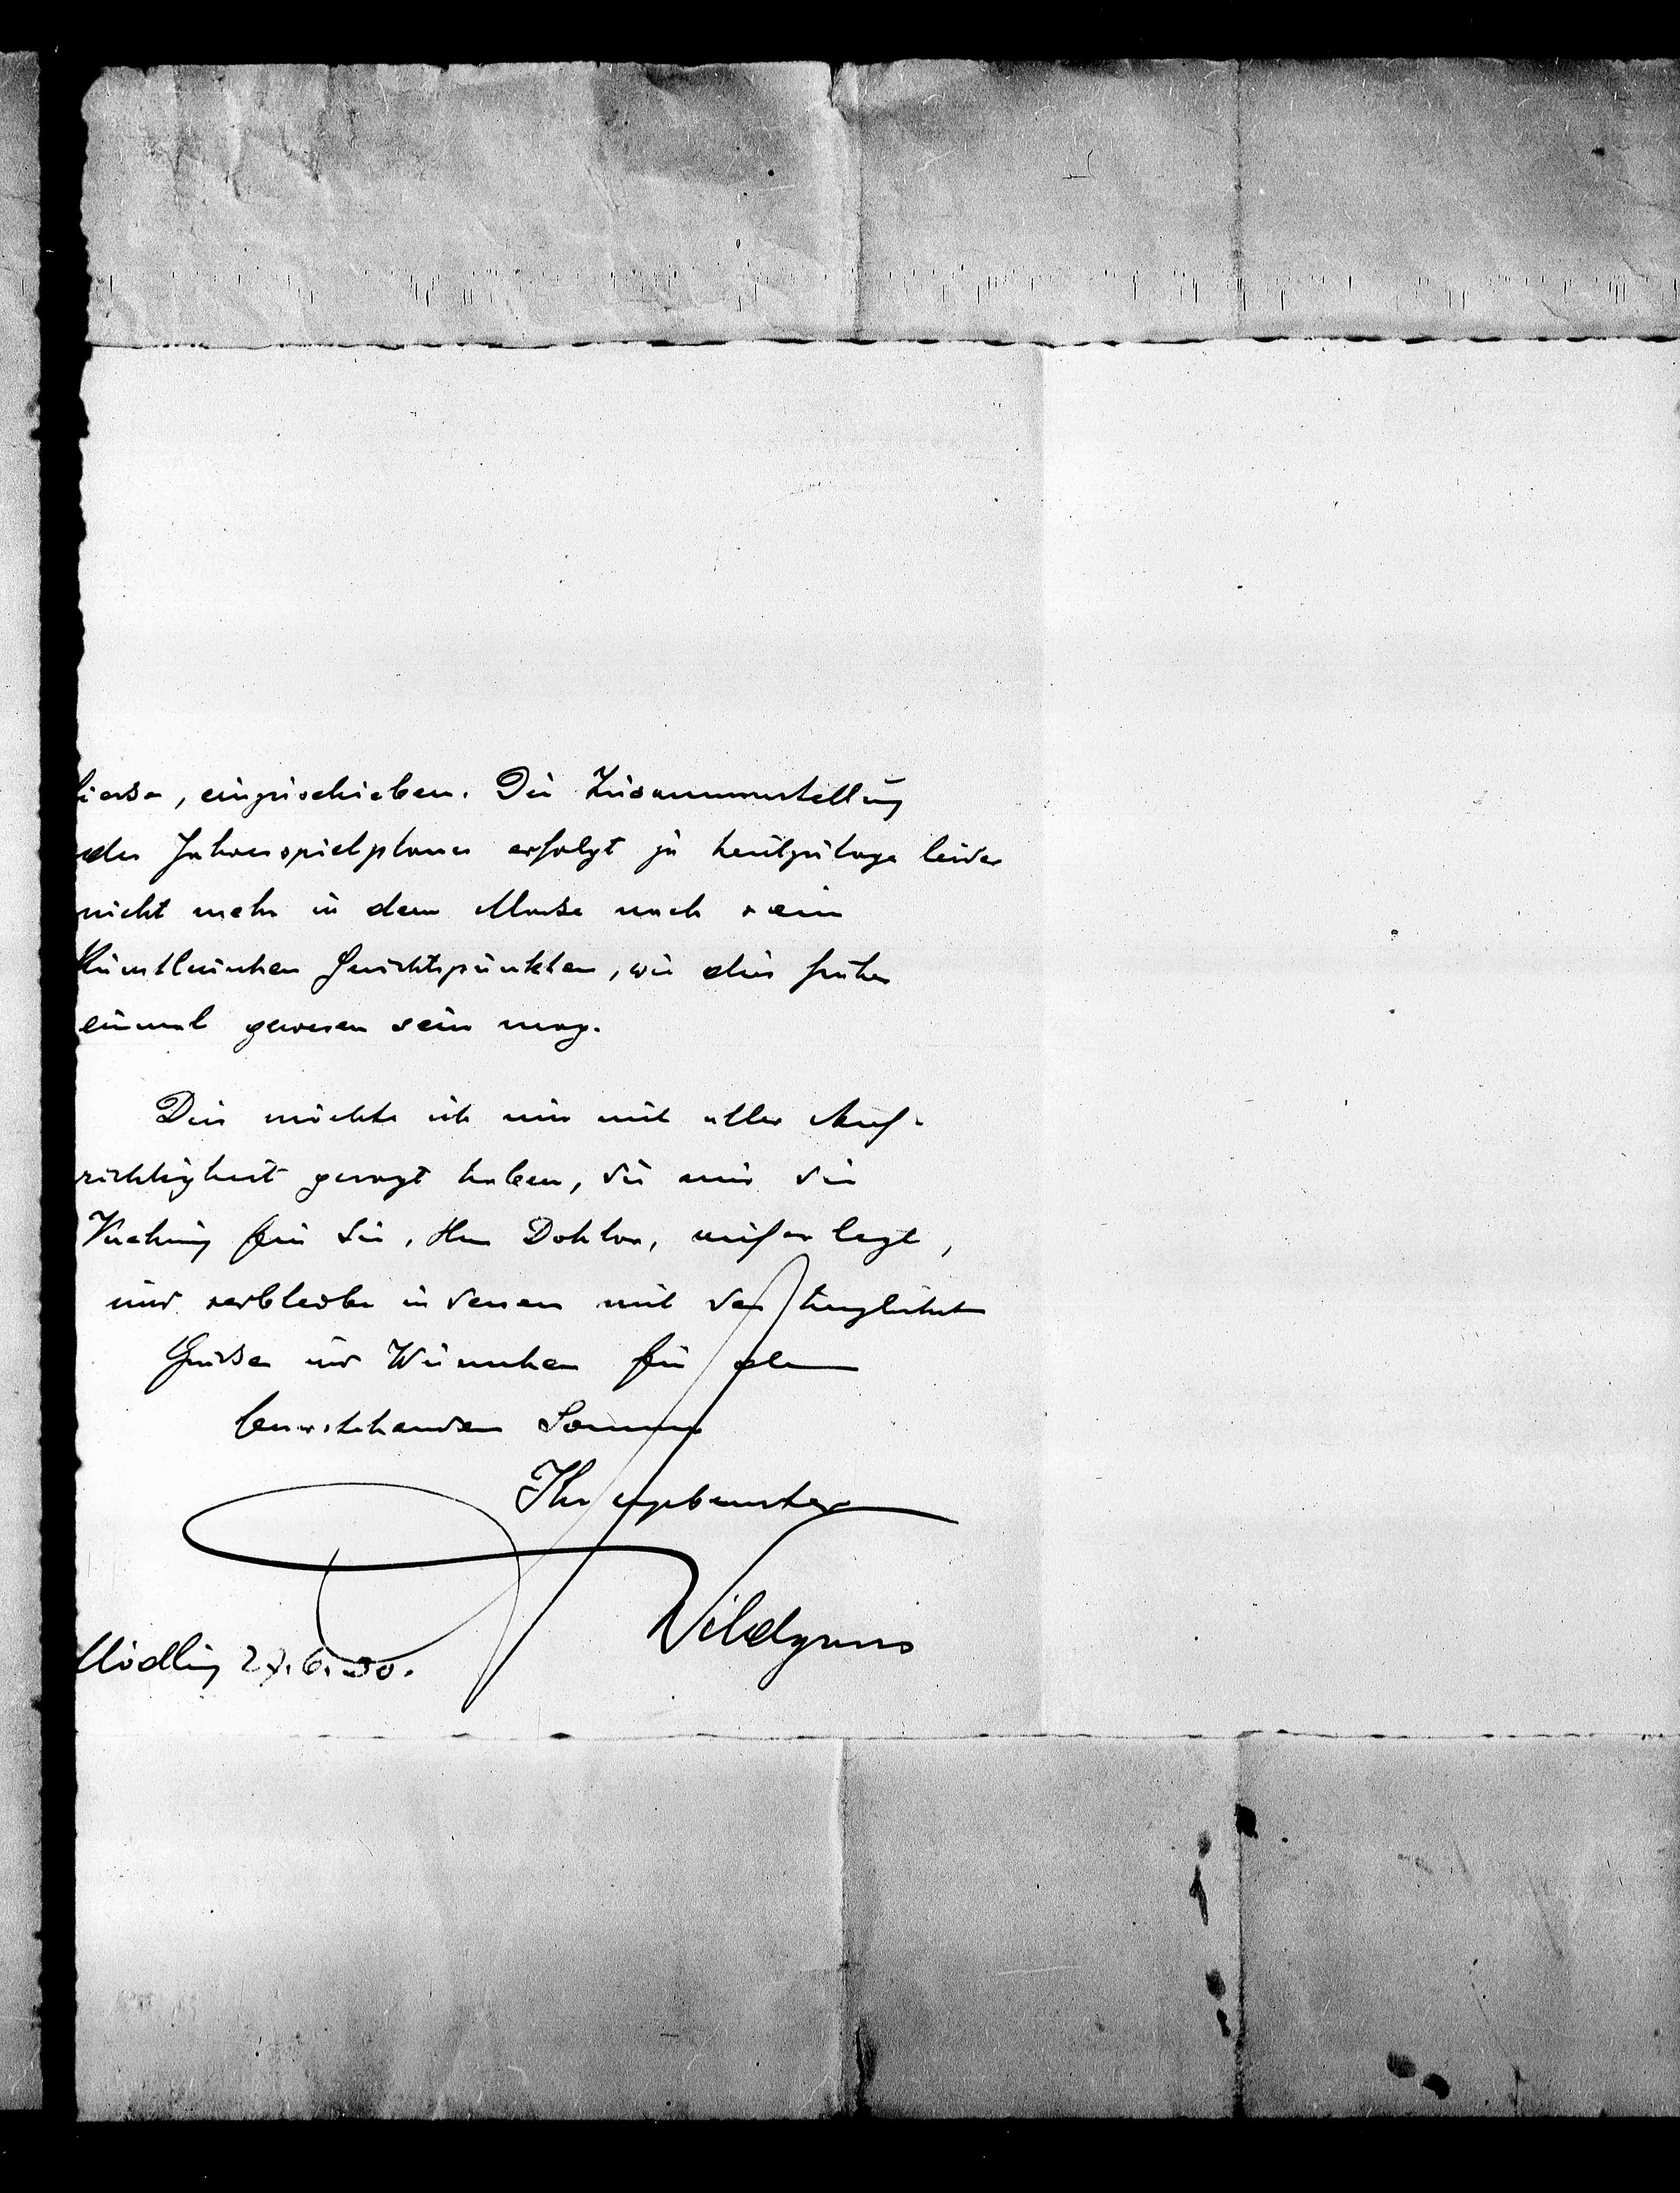 liesse, einzuschieben. Die Zusammenstellung
des Jahresspielplanes erfolgt ja heutzutage leider
nicht mehr in dem Masse nach rein
künstlerischen Gesichtspunkten, wie dies früher
einmal gewesen sein mag.
Dies möchte ich nur mit aller Auf-
richtigkeit gesagt haben, die mir die
für Sie, Herr Doktor, auferlegt,
und verbleibe indessen mit den
Grüssen und Wünschen für den
bevorstehenden Sommer
Ihr ergebenster
Wildgans
Mödling 27.6.30.